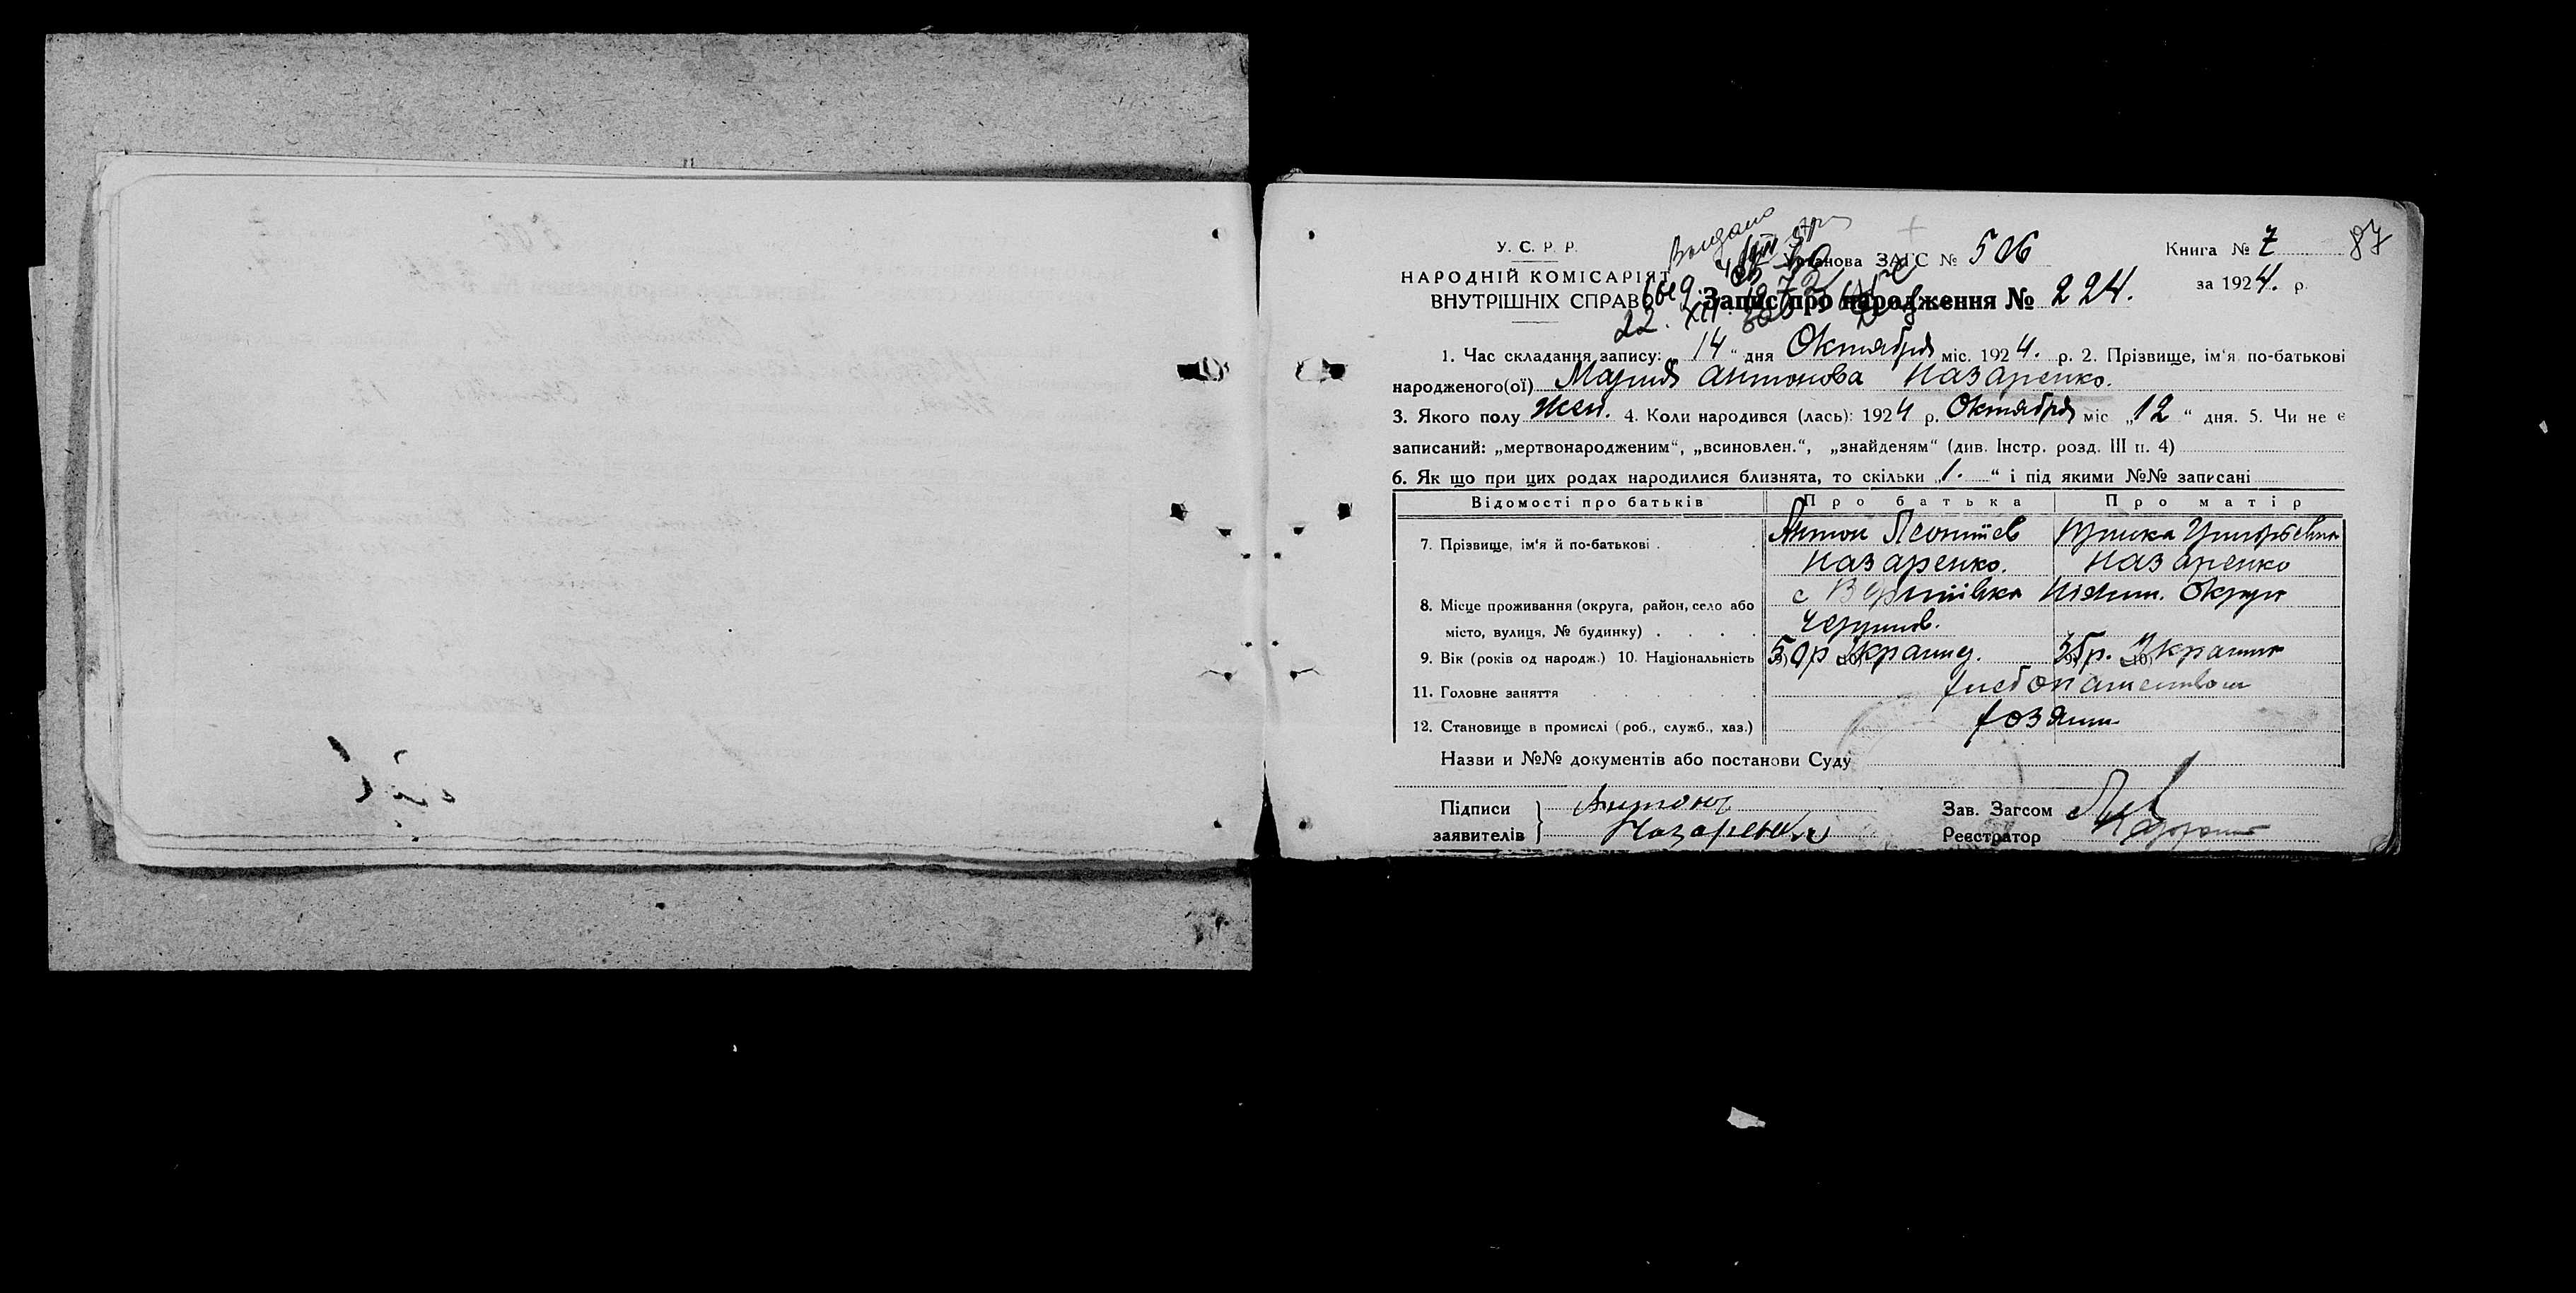 У. С. Р. Р.
НАРОДНІЙ КОМІСАРІЯТ
ВНУТРІШНІХ СПРАВ
Установа ЗАГС № 506
Книга № 7
87
за 1924. р.
Запис про народження № 224.
1. Час складання запису: 14 " дня Октября міс. 1924. р. 2. Прізвище, ім'я по-батькові
народженого(ої) Мария Антонова Назаренко.
3. Якого полу Жен. 4. Коли народився (лась): 1924 р. Октября міс „12 " дня. 5. Чи не є
записаний: „мертвонародженим", „всиновлен.", „знайденям" (див. Інстр. розд. III п. 4)
6. Як що при цих родах народилися близнята, то скільки „1. " і під якими №№ записані
Відомості про батьків Про батька Про матір
7. Прізвище, ім'я й по-батькові . Антон Леонтіев
Назаренко. Назаренко
8. Місце проживання (округа, район, село або с Вертіївка Ніжин. Округи
місто, вулиця, № будинку) . . . . Чернигов.
9. Вік (років од народж.) 10. Національність 50р Украинец. 35р. Украинка
11. Головне заняття хлебопашеством
12. Становище в промислі (роб., служб., хаз.) хозяин
Назви и №№ документів або постанови Суду
Підписи Антон
заявителів Назаренко
Зав. Загсом
Реєстратор